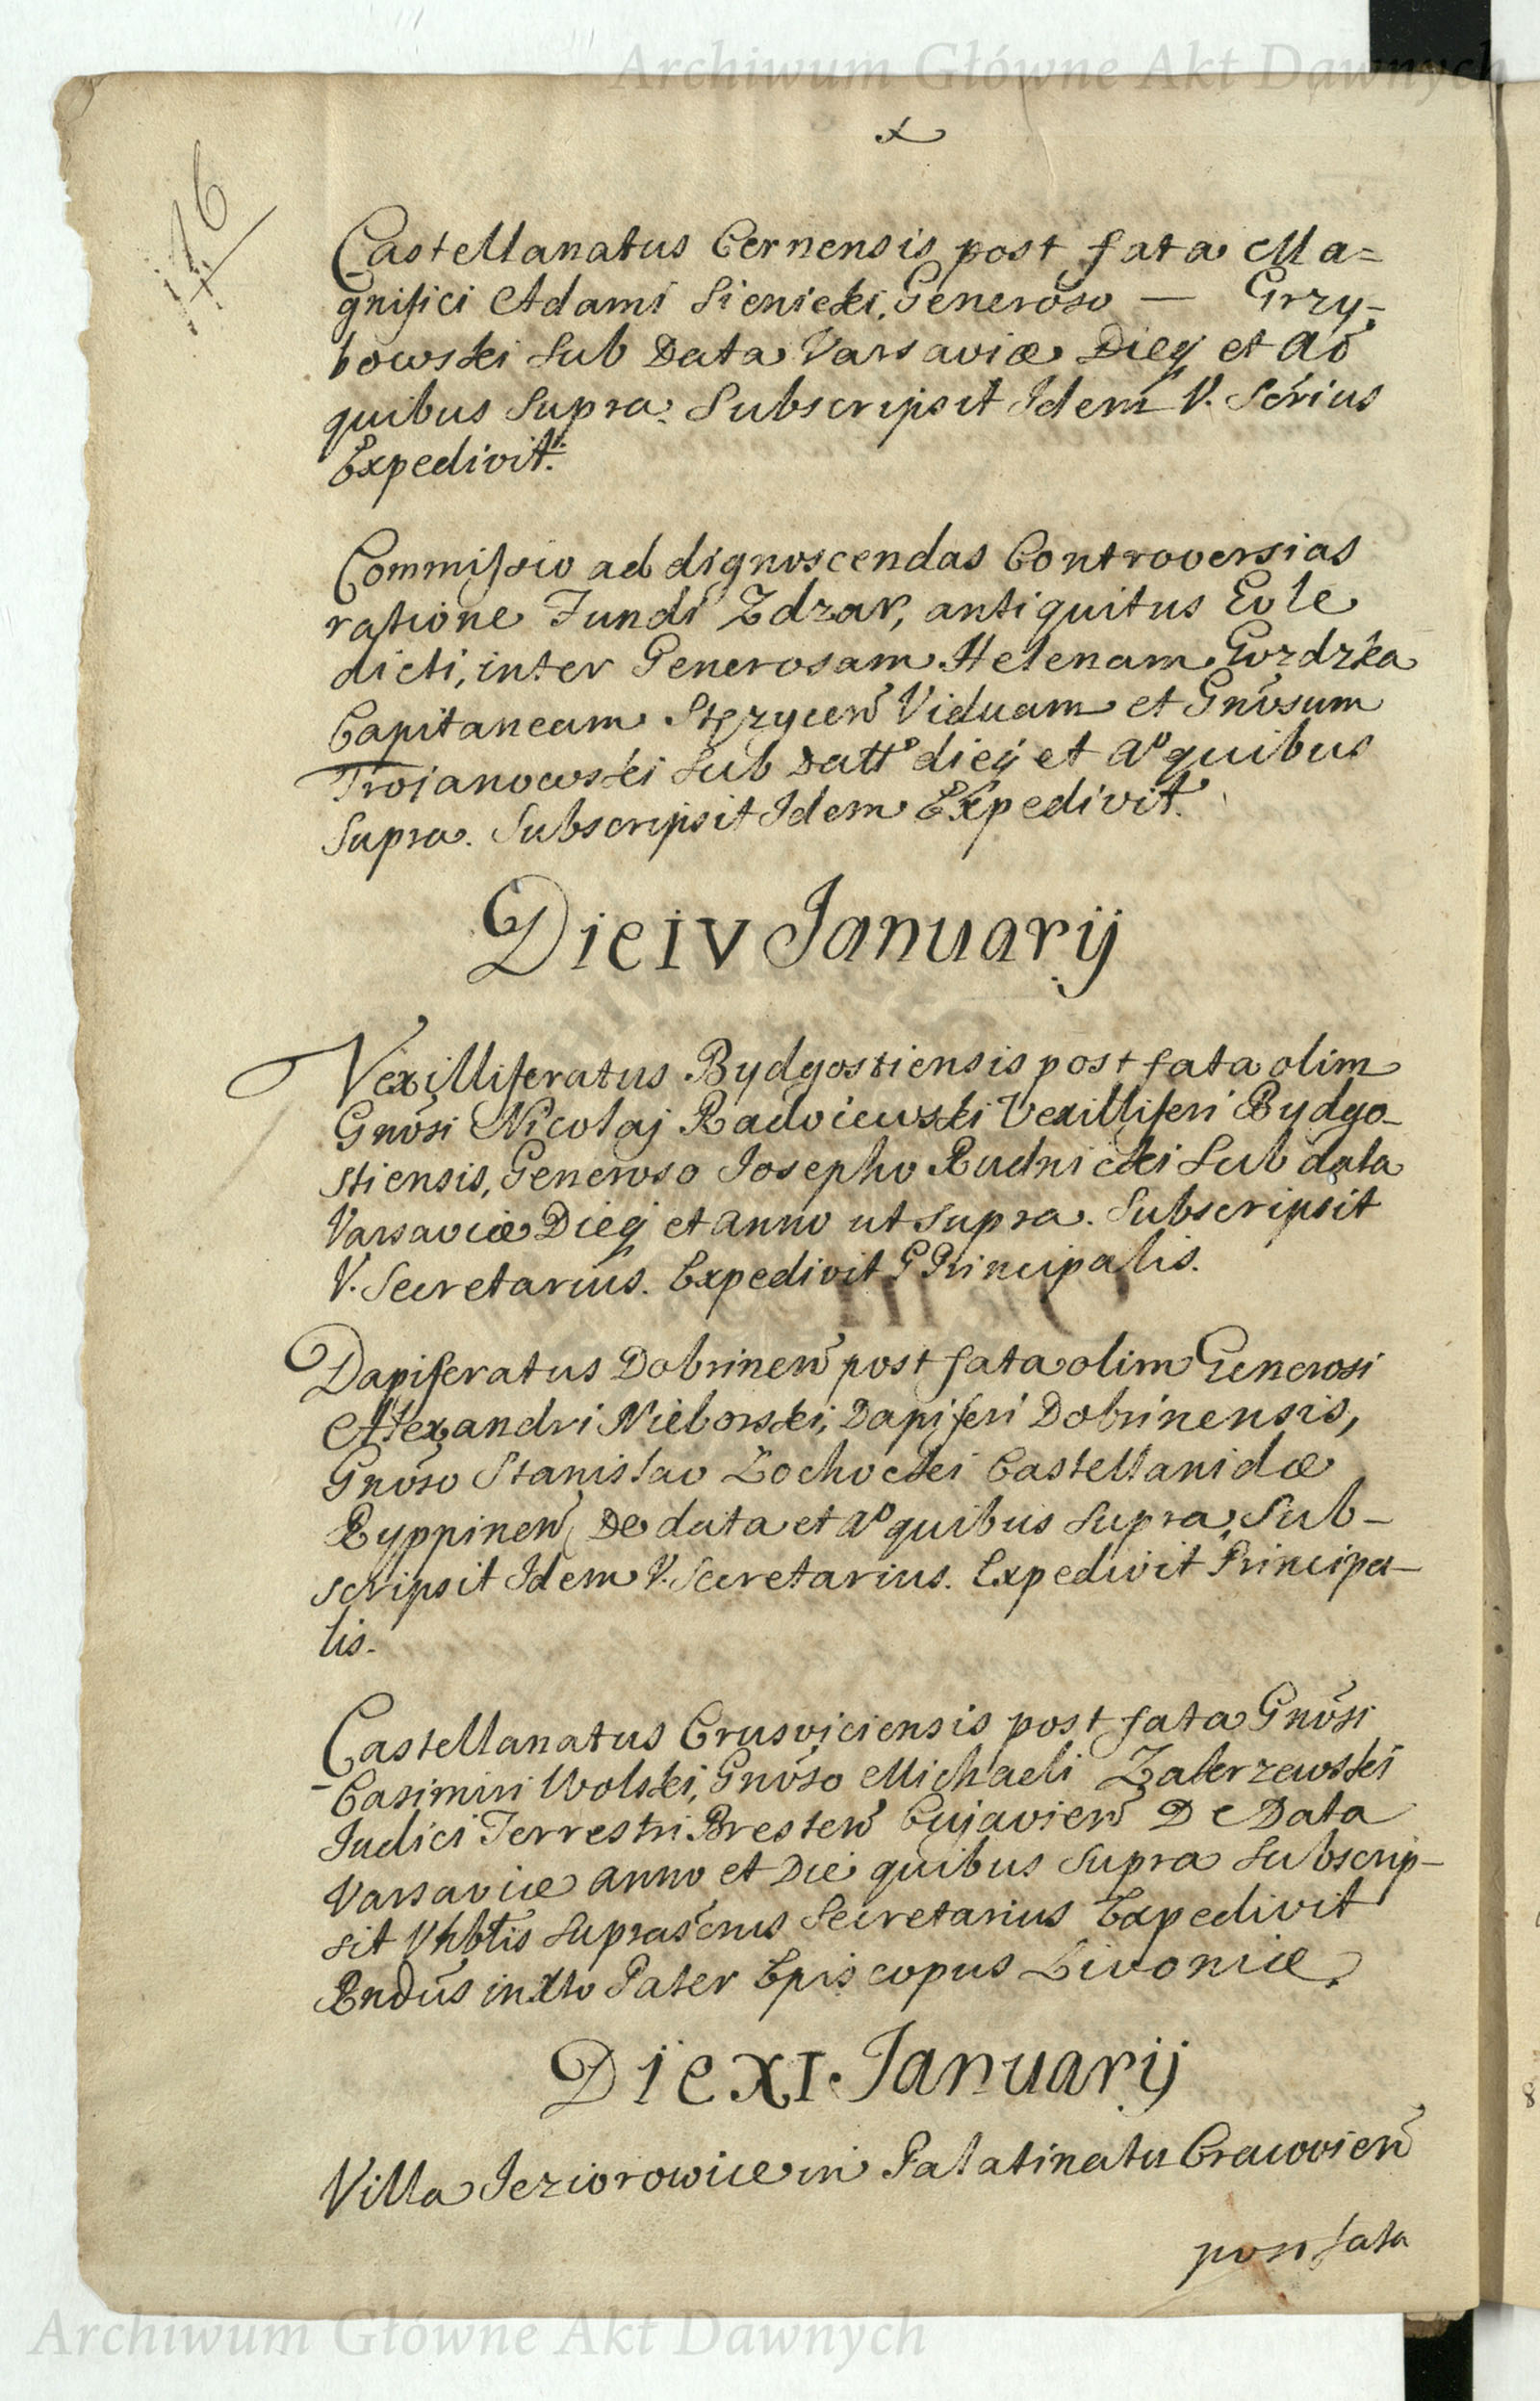 Archiwum Główne Akt Dawnych
1776
Castellanatus Cernensis post fata Ma=
gnifici Adami Sienicki, Generoso — Grzy-
bowski sub Data Varsaviæ Dieq et Aõ
quibus Supra. Subscripsit Idem V. Scrius
Expedivit.
Commissio ad dignoscendas Controversias
ratione Fundi Zdzar, antiquitus Role
dicti, inter Generosam Helenam Gozdzka
Capitaneam Stęzyceñ Viduam et Gnõsum
Trojanowski sub datt° dieq et A° quibus
Supra. Subscripsit Idem Expedivit.
Die IV Januarij
Vexilliferatus Bydgostiensis post fata olim
Gnõsi Nicolaj Radoiewski Vexilliferi Bydgo-
stiensis, Generoso Josepho Rudnicki sub data
Varsaviæ Dieq et anno ut supra. Subscripsit
V. Secretarius. Expedivit P Principalis.
Dapiferatus Dobrineñ post fata olim Generosi
Alexandri Nieborski, Dapiferi Dobrinensis,
Gnõso Stanislao Zochocki Castellanidæ
Ryppineñ De data et A° quibus supra, Sub-
scripsit Idem V. Secretarius. Expedivit Principa-
lis.
Castellanatus Crusviciensis post fata Gnõsi
Casimiri Wolski, Gnõso Michaeli Zakrzewski
Judici Terrestri Bresteñ Cujavieñ De Data
Varsaviæ anno et Die quibus supra Subscrip-
sit Suprascrius Secretarius Expedivit
Rndus in Xto Pater Episcopus Livoniæ.
Die XI Januarij
Villa Jeziorowice in Palatinatu Cracovieñ
post fata
Archiwum Główne Akt Dawnych